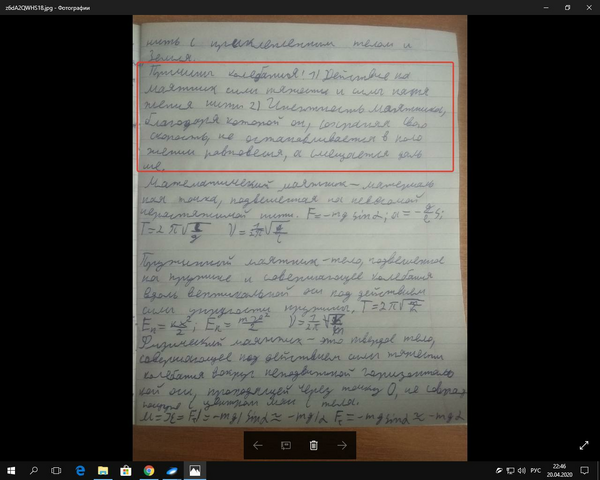 z6dA2QWHS18.jpg - Фотографии
нить с прикрепленным телом и
Земля.
Причины колебания: 1) Действие на
маятник силы тяжести и силы натя
жения нити 2) Инертность маятника,
благодаря которой он, сохраняя свою
скорость, не останавливается в поло
жении равновесия, а смещается даль
ше.
Математический маятник - материаль
ная точка, подвешенная на невесомой
нерастяжимой нити. F = -mg sin α; a = -g/l S;
T = 2π√l/g V = 1/2π√g/l
Пружинный маятник - тело, подвешенное
на пружине и совершающее колебания
вдоль вертикальной оси под действием
силы упругости пружины, T = 2π√m/k
Eп = kx²/2; Eк = V = 1/2π√k/m
Физический маятник - это твердое тело,
совершающее под действием силы тяжести
колебания вокруг неподвижной горизонталь
ной оси, проходящей через точку O, не совпа
с центром масс тела.
= -mgl sin α ≈ -mglα Fτ = -mg sin α ≈ -mgα
РУС
22:46
20.04.2020